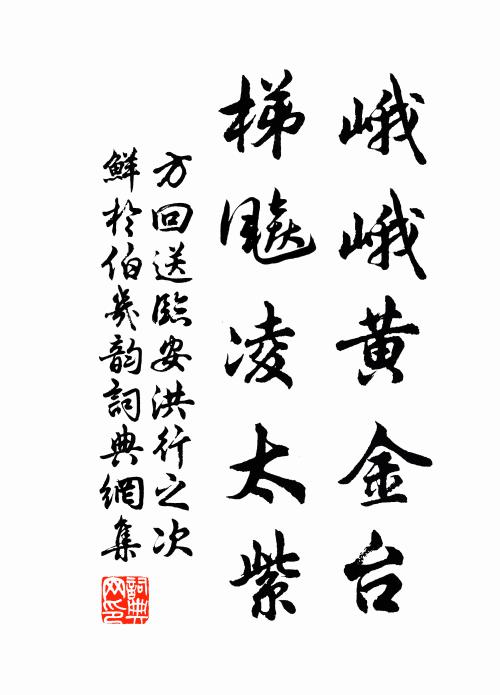 峨峨黄金台
梯飚凌太紫
方回送臨安洪行之次
鮮於伯幾韵詞典網集
詞典网印